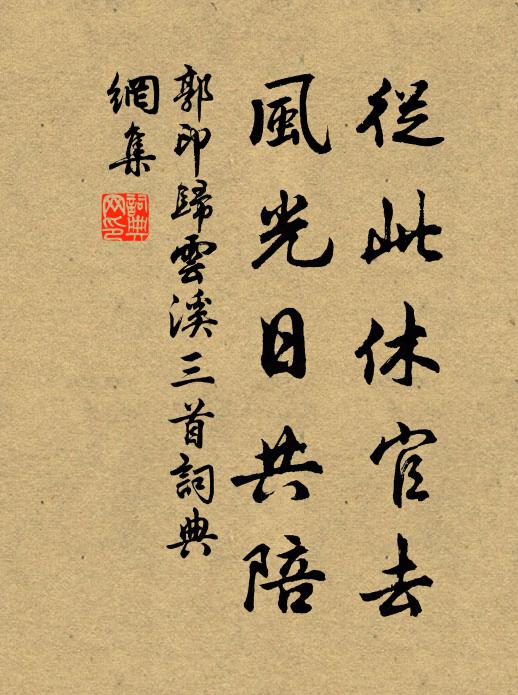 從此休官去
風光日共陪
郭印歸雲溪三首詞典
網集
詞典
网印